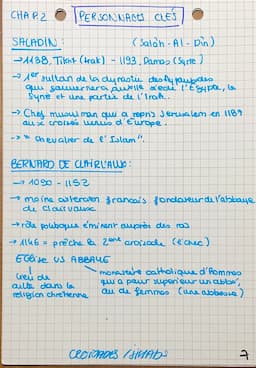 CHAP.2 PERSONNAGES CLÉS
SALADIN : (Salâh - Al - Dîn)
→ 1138, Tikrit (Irak) - 1193, Damas (Syrie)
→ 1er sultan de la dynastie des Ayyoubides
qui gouvernera au XIIe siècle l'Egypte, la
Syrie et une partie de l'Irak.
→ Chef musulman qui a repris Jérusalem en 1189
aux croisés venus d'Europe.
→ "Chevalier de l'Islam".
BERNARD DE CLAIRVAUX :
→ 1090 - 1152
→ moine cistercien français fondateur de l'abbaye
de Clairvaux
→ rôle politique éminent auprès des rois
→ 1146 = prêche la 2ème croisade (Echec)
EGLISE VS ABBAYE
lieu de
culte dans la
religion chrétienne
monastère catholique d'hommes
qui a pour supérieur un abbé,
ou de femmes (une abbesse)
CROISADES / JIHAD
7